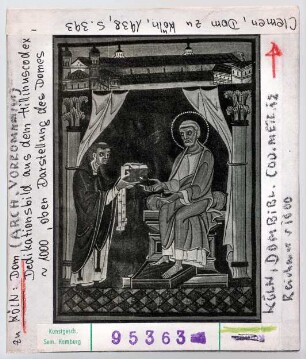 zu KÖLN: Dom (ARCH. VORROMANIK)
Dedikationsbild aus dem Hillinuscodex
~ 1000, oben Darstellung des Domes
Clemen, Dom zu Köln, 1938, S. 393
KÖLN, DOMBIBL. COD. METR. 12
Reichenau 1000
Kunstgesch.
Sem. Hamburg
95363